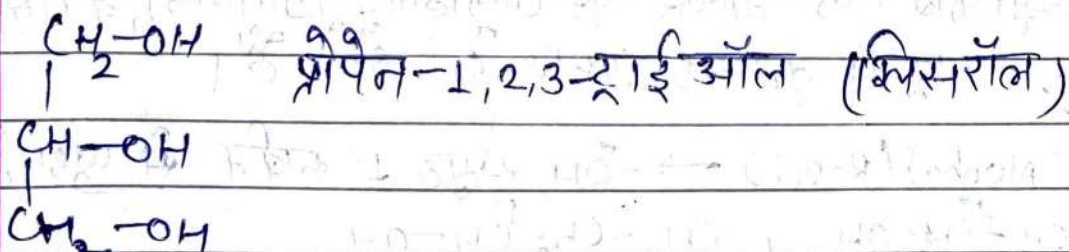 CH2-OH प्रोपेन-1,2,3-ट्राई ऑल (ग्लिसरॉल)
|
CH-OH
|
CH2-OH